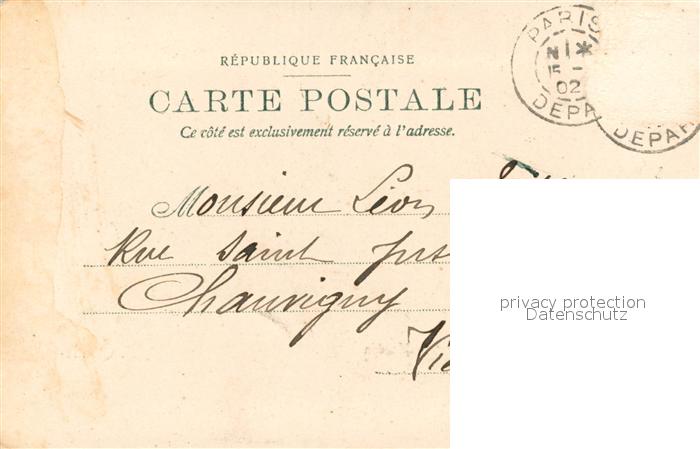 PARIS
N
15 -
02
DEPA
DEPAR
RÉPUBLIQUE FRANÇAISE
CARTE POSTALE
Ce côté est exclusivement réservé à l'adresse.
Monsieur Léon
Rue Saint Just
Chauvigny
Vie
privacy protection
Datenschutz